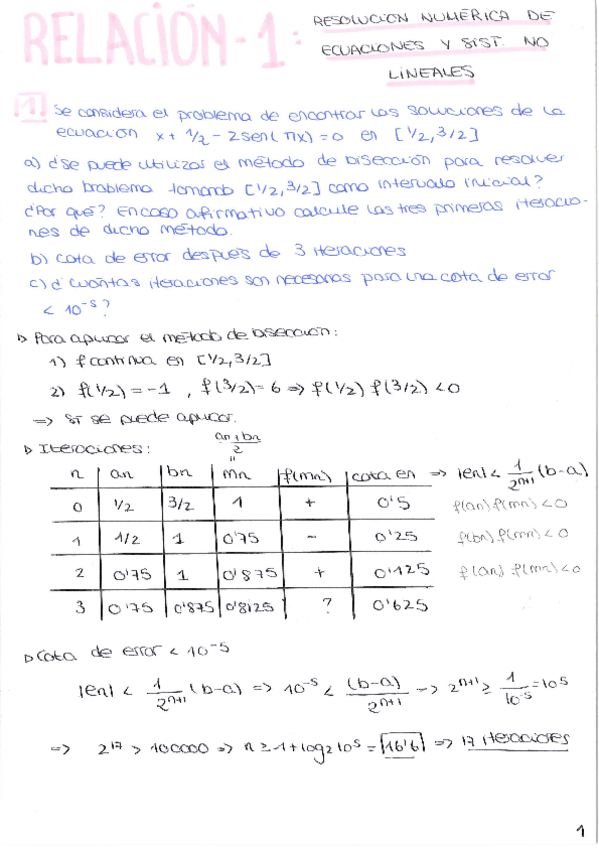 RELACIÓN-1: RESOLUCION NUMÉRICA DE
ECUACIONES Y SIST. NO
LINEALES
1. Se considera el problema de encontrar las soluciones de la
ecuación x + 1/2 - 2sen(πx) = 0 en [1/2, 3/2]
a) ¿Se puede utilizar el método de bisección para resolver
dicho problema tomando [1/2, 3/2] como intervalo inicial?
¿Por qué? En caso afirmativo calcule las tres primeras iteracio-
nes de dicho método.
b) cota de error después de 3 iteraciones
c) ¿cuántas iteraciones son necesarias para una cota de error
< 10^-5?
▷ Para aplicar el método de bisección:
1) f continua en [1/2, 3/2]
2) f(1/2) = -1 , f(3/2) = 6 => f(1/2) f(3/2) < 0
=> SÍ se puede aplicar.
▷ Iteraciones:
an+bn
2
"
n | an | bn | mn | f(mn) | cota en => |en| < 1/2^n+1 (b-a)
0 | 1/2 | 3/2 | 1 | + | 0'5 f(an) f(mn) < 0
1 | 1/2 | 1 | 0'75 | - | 0'25 f(bn) f(mn) < 0
2 | 0'75 | 1 | 0'875 | + | 0'125 f(an) f(mn) < 0
3 | 0'75 | 0'875 | 0'8125 | ? | 0'625
▷ Cota de error < 10^-5
|en| < 1/2^n+1 (b-a) => 10^-5 < (b-a)/2^n+1 -> 2^n+1 ≥ 1/10^-5 = 10^5
=> 2^17 > 100000 => n ≥ 1 + log2 10^5 = 16'6 => 17 iteraciones
1